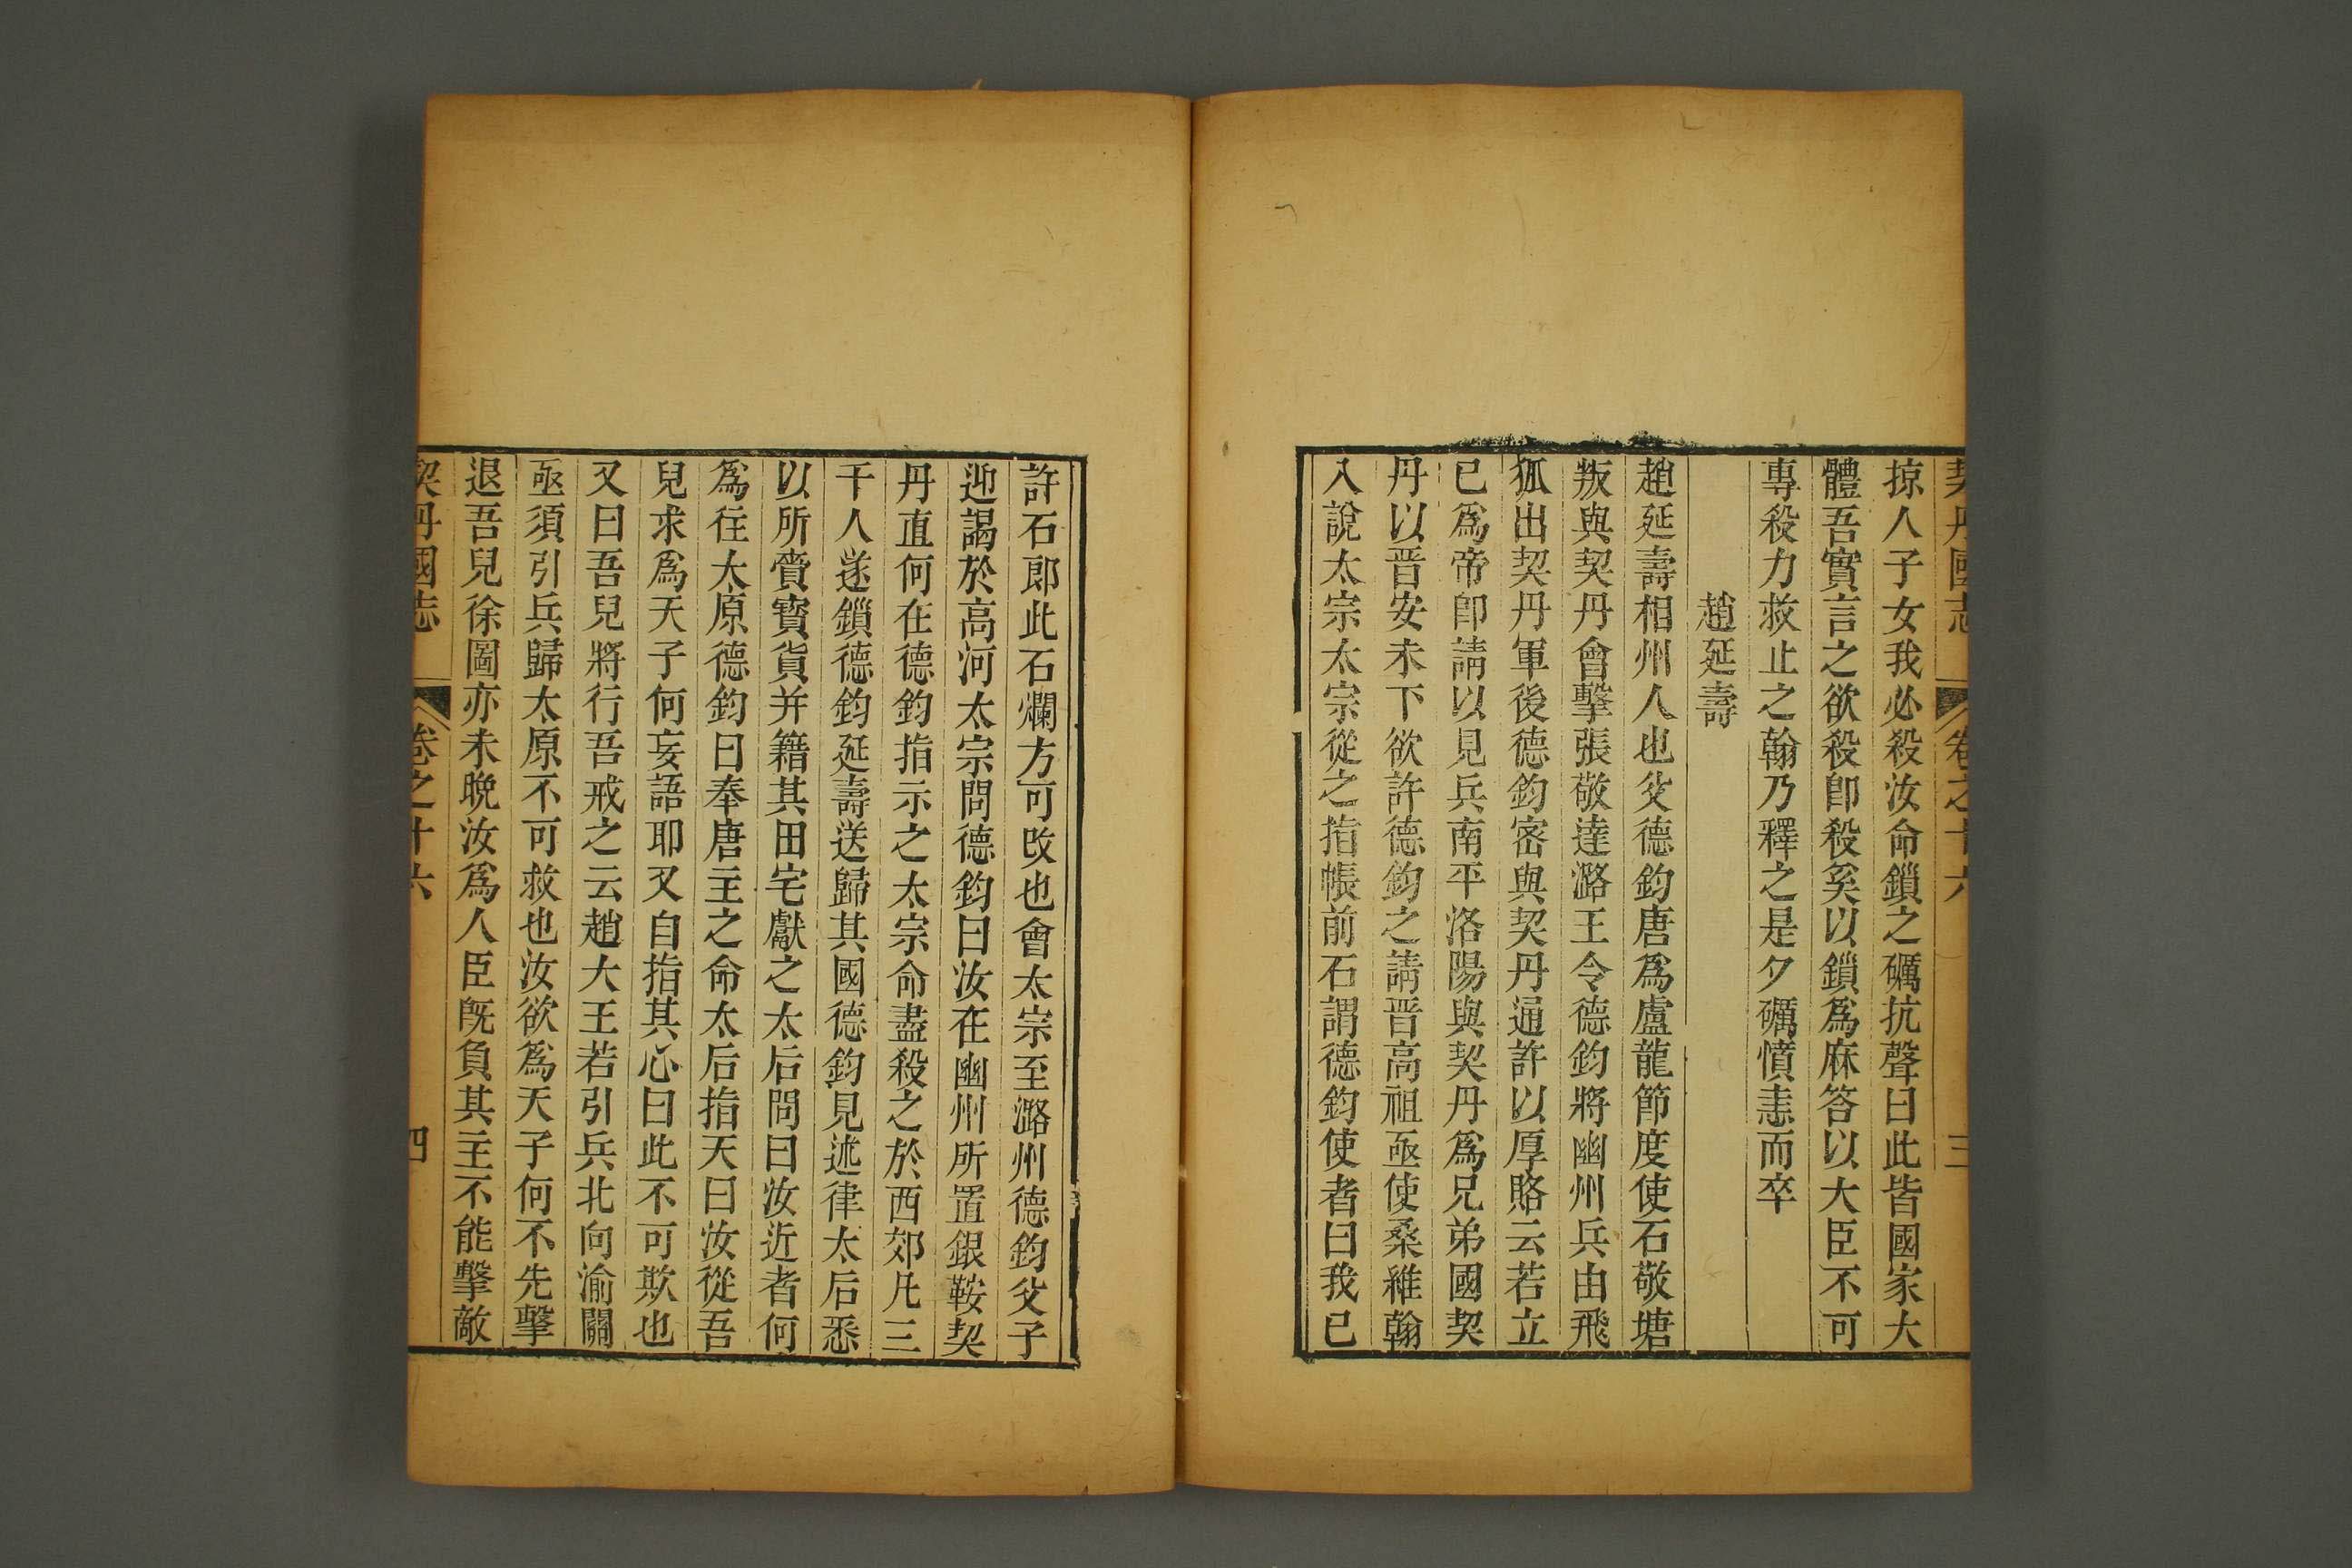 契丹國志 卷之十六 三
掠人子女我必殺汝命鎖之礪抗聲曰此皆國家大
體吾實言之欲殺卽殺奚以鎖爲麻答以大臣不可
專殺力救止之翰乃釋之是夕礪憤恚而卒
趙延壽
趙延壽相州人也父德鈞唐爲盧龍節度使石敬塘
叛與契丹會擊張敬達潞王令德鈞將幽州兵由飛
狐出契丹軍後德鈞密與契丹通許以厚賂云若立
已爲帝卽請以見兵南平洛陽與契丹爲兄弟國契
丹以晋安未下欲許德鈞之請晋高祖亟使桑維翰
入說太宗太宗從之指帳前石謂德鈞使者曰我已
許石郞此石爛方可攺也會太宗至潞州德鈞父子
迎謁於高河太宗問德鈞曰汝在幽州所置銀鞍契
丹直何在德鈞指示之太宗命盡殺之於西郊凡三
千人遂鎖德鈞延壽送歸其國德鈞見述律太后悉
以所賫寳貨并籍其田宅獻之太后問曰汝近者何
爲往太原德鈞曰奉唐主之命太后指天曰汝從吾
兒求爲天子何妄語耶又自指其心曰此不可欺也
又曰吾兒將行吾戒之云趙大王若引兵北向渝關
亟須引兵歸太原不可救也汝欲爲天子何不先擊
退吾兒徐圖亦未晚汝爲人臣旣負其主不能擊敵
契丹國志 卷之十六 四